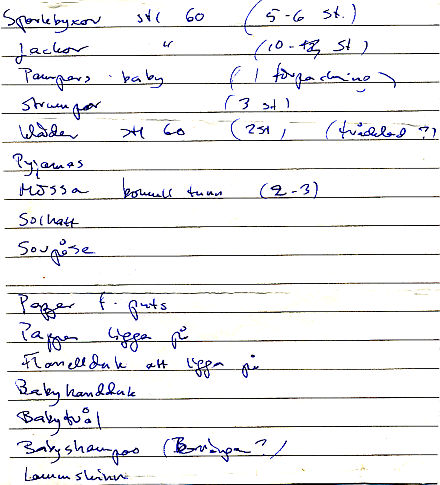 Sparkbyxor stl 60 (5-6 st.)
Jackor " (10-12 st)
Pampers baby (1 förpackning)
Strumpor (3 st)
stl 60 (2 st)
Pyjamas
Mössa bomull tunn (2-3)
Solhatt
Sovpåse
Papper f. puts
Papper ligga på
Flanellduk att ligga på
Babyhandduk
Babytvål
Babyshampoo
Lammskinn